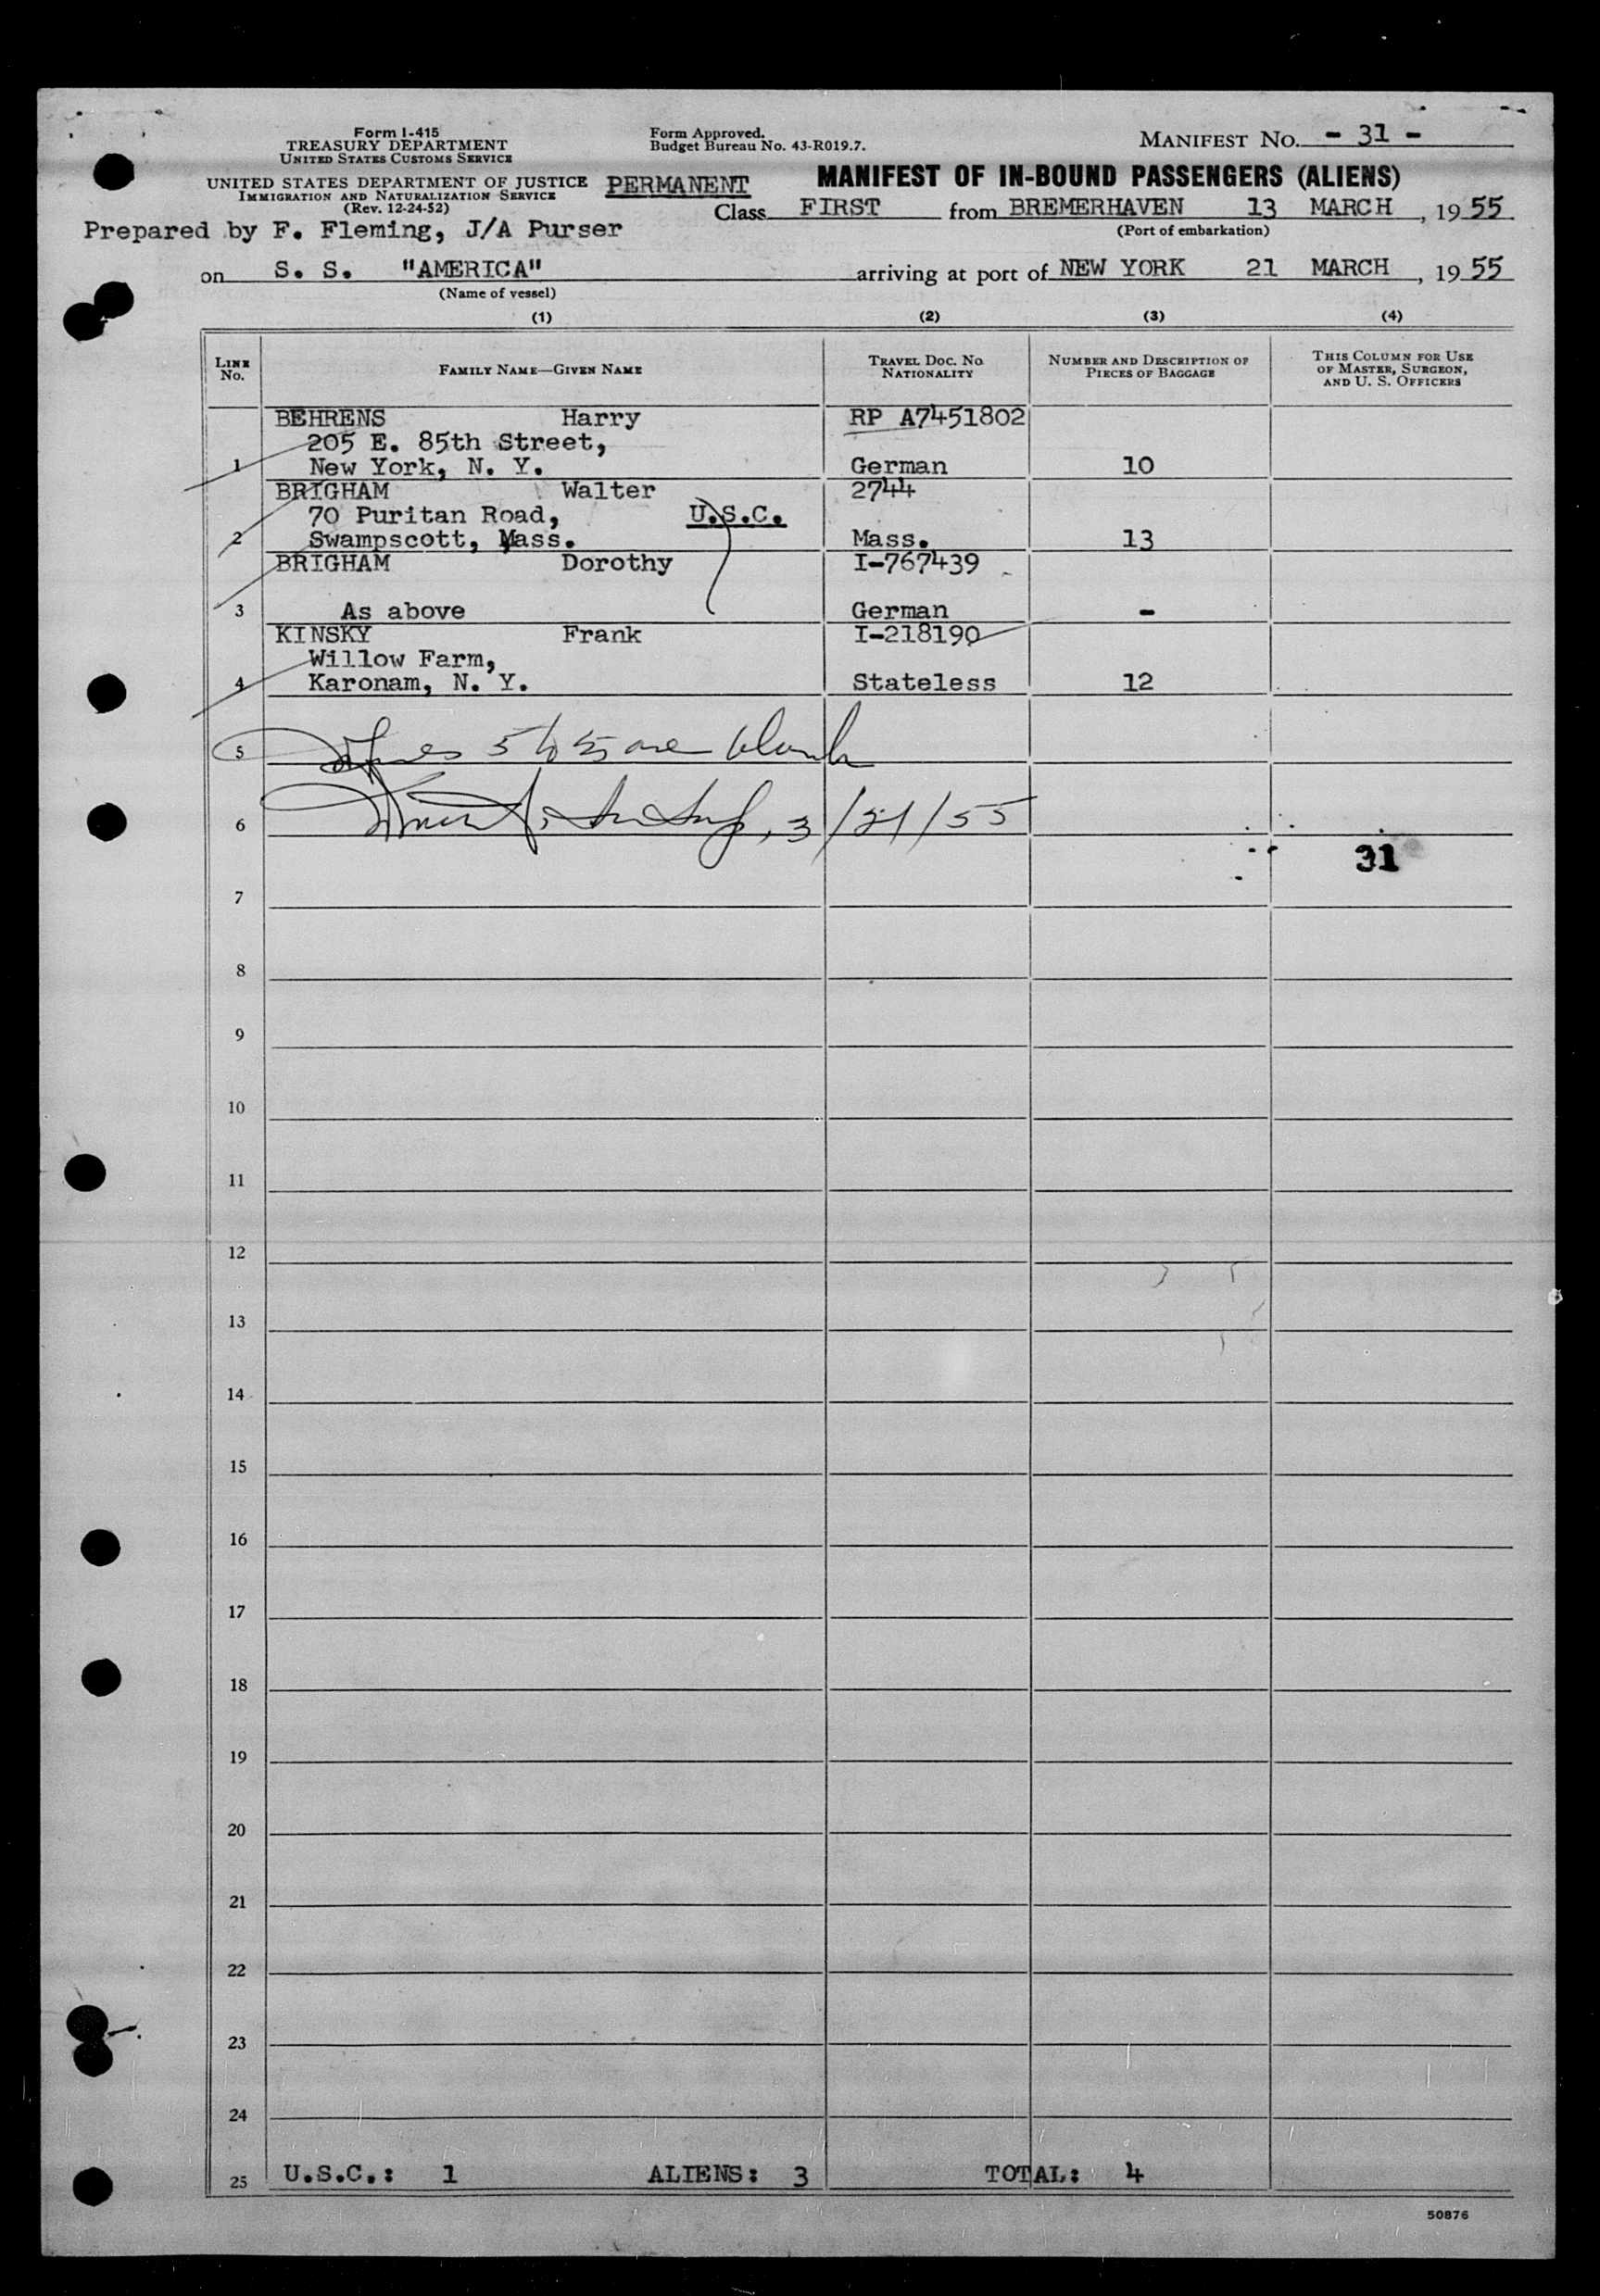 Form I-415
TREASURY DEPARTMENT
UNITED STATES CUSTOMS SERVICE
UNITED STATES DEPARTMENT OF JUSTICE
IMMIGRATION AND NATURALIZATION SERVICE
(Rev. 12-24-52)
Form Approved.
Budget Bureau No. 43-R019.7.
MANIFEST No. - 31 -
PERMANENT
MANIFEST OF IN-BOUND PASSENGERS (ALIENS)
Class FIRST from BREMERHAVEN 13 MARCH, 1955
(Port of embarkation)
Prepared by F. Fleming, J/A Purser
on S. S. "AMERICA" arriving at port of NEW YORK 21 MARCH, 1955
(Name of vessel)
(1) (2) (3) (4)
LINE No. FAMILY NAME—GIVEN NAME TRAVEL DOC. NO. NATIONALITY NUMBER AND DESCRIPTION OF PIECES OF BAGGAGE THIS COLUMN FOR USE OF MASTER, SURGEON, AND U. S. OFFICERS
BEHRENS Harry RP A7451802
205 E. 85th Street,
1 New York, N. Y. German 10
BRIGHAM Walter 2744
70 Puritan Road, U.S.C.
2 Swampscott, Mass. Mass. 13
BRIGHAM Dorothy I-767439
3 As above German -
KINSKY Frank I-218190
Willow Farm,
4 Karonam, N. Y. Stateless 12
5 Lines 5 to 25 are blank
6 3/21/55
31
7
8
9
10
11
12
13
14
15
16
17
18
19
20
21
22
23
24
25 U.S.C.: 1 ALIENS: 3 TOTAL: 4
50876